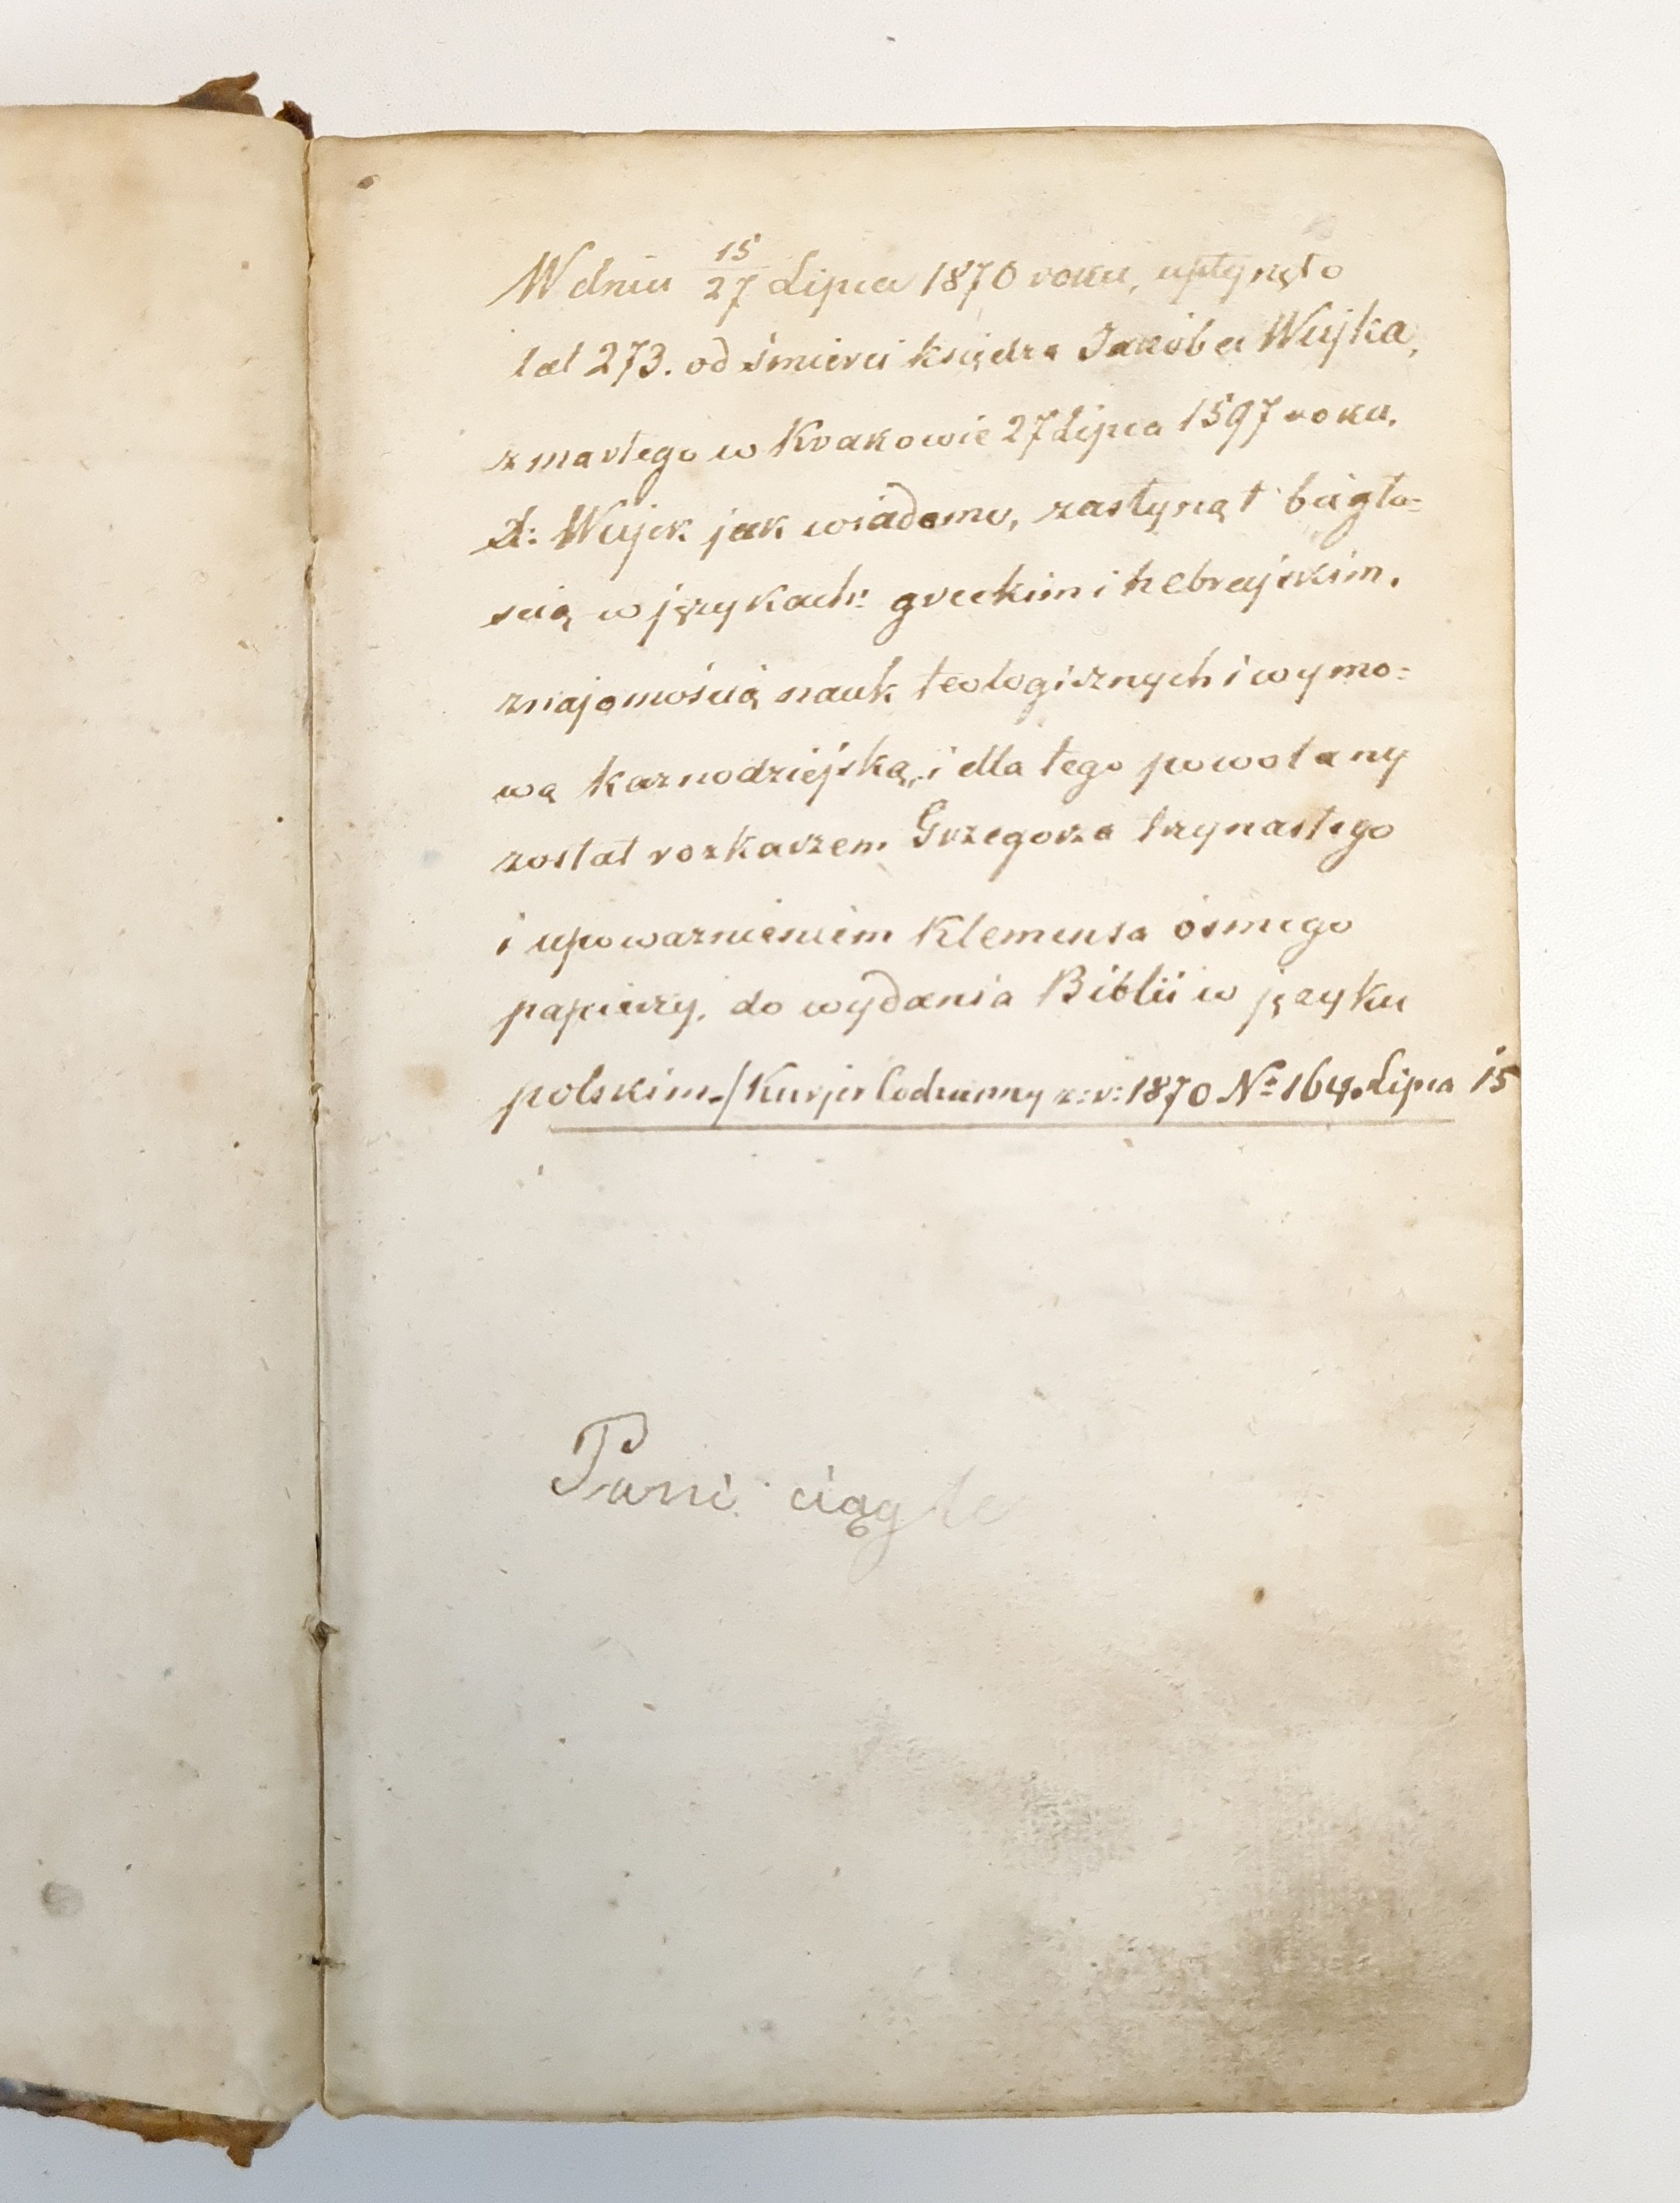 W dniu 15/27 Lipca 1870 roku, upłynęło
lat 273. od śmierci księdza Jakóba Wujka,
zmarłego w Krakowie 27 Lipca 1597 roku.
X: Wujek jak wiadomo, zasłynął biegło=
scią w językach: greckim i hebrajskim,
znajomością nauk teologicznych i wymo=
wą kaznodziejską, i dla tego powołany
został rozkazem Grzegorza trzynastego
i upoważnieniem Klemensa ósmego
papieży, do wydania Biblii w języku
polskim./Kurjer Codzienny z: r: 1870 No 164. Lipca 15
Pani ciągle